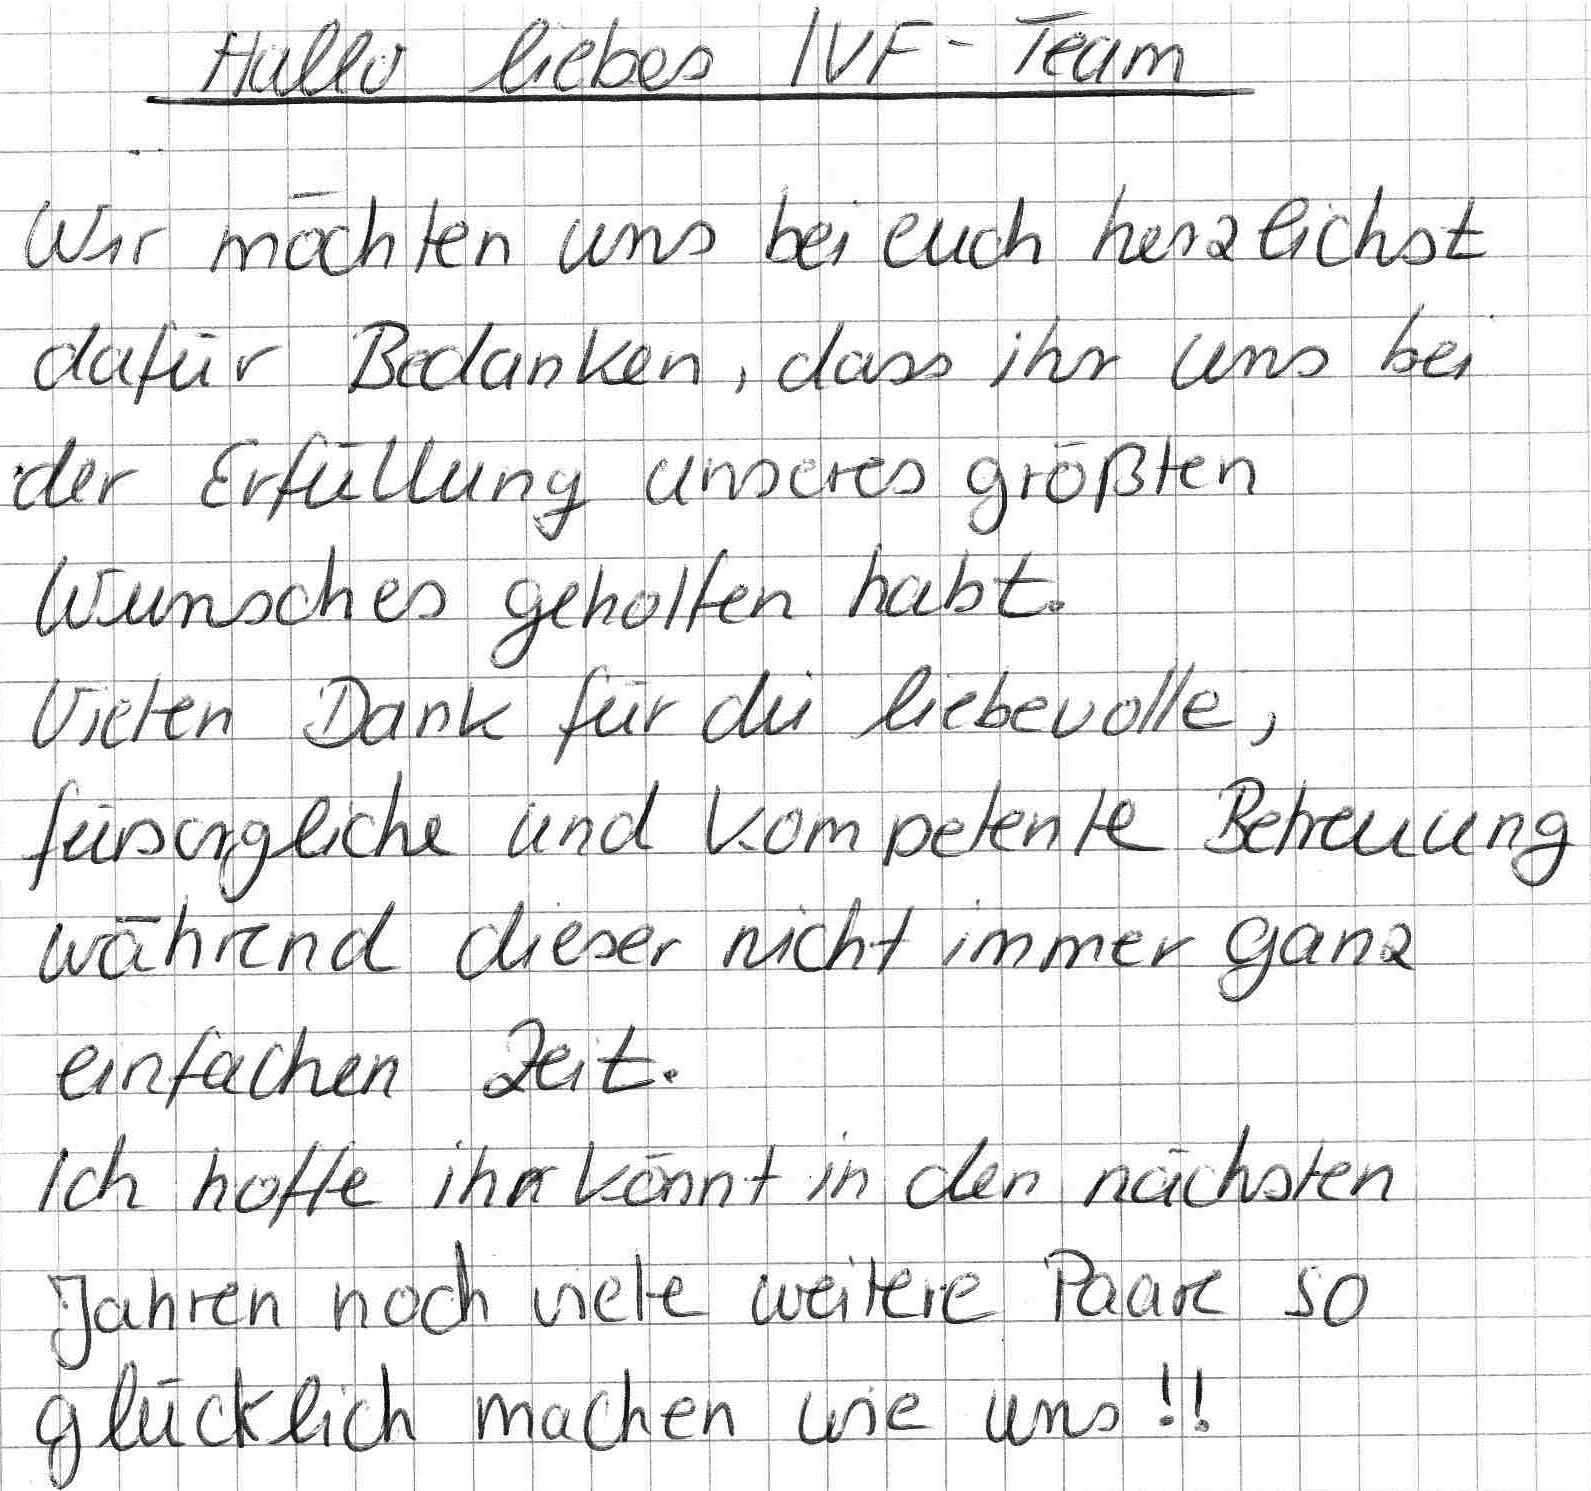 Hallo liebes IVF-Team
Wir möchten uns bei euch herzlichst
dafür Bedanken, dass ihr uns bei
der Erfüllung unseres größten
Wunsches geholfen habt.
Vielen Dank für die liebevolle,
fürsorgliche und kompetente Betreuung
während dieser nicht immer ganz
einfachen Zeit.
Ich hoffe ihr könnt in den nächsten
Jahren noch viele weitere Paare so
glücklich machen wie uns!!